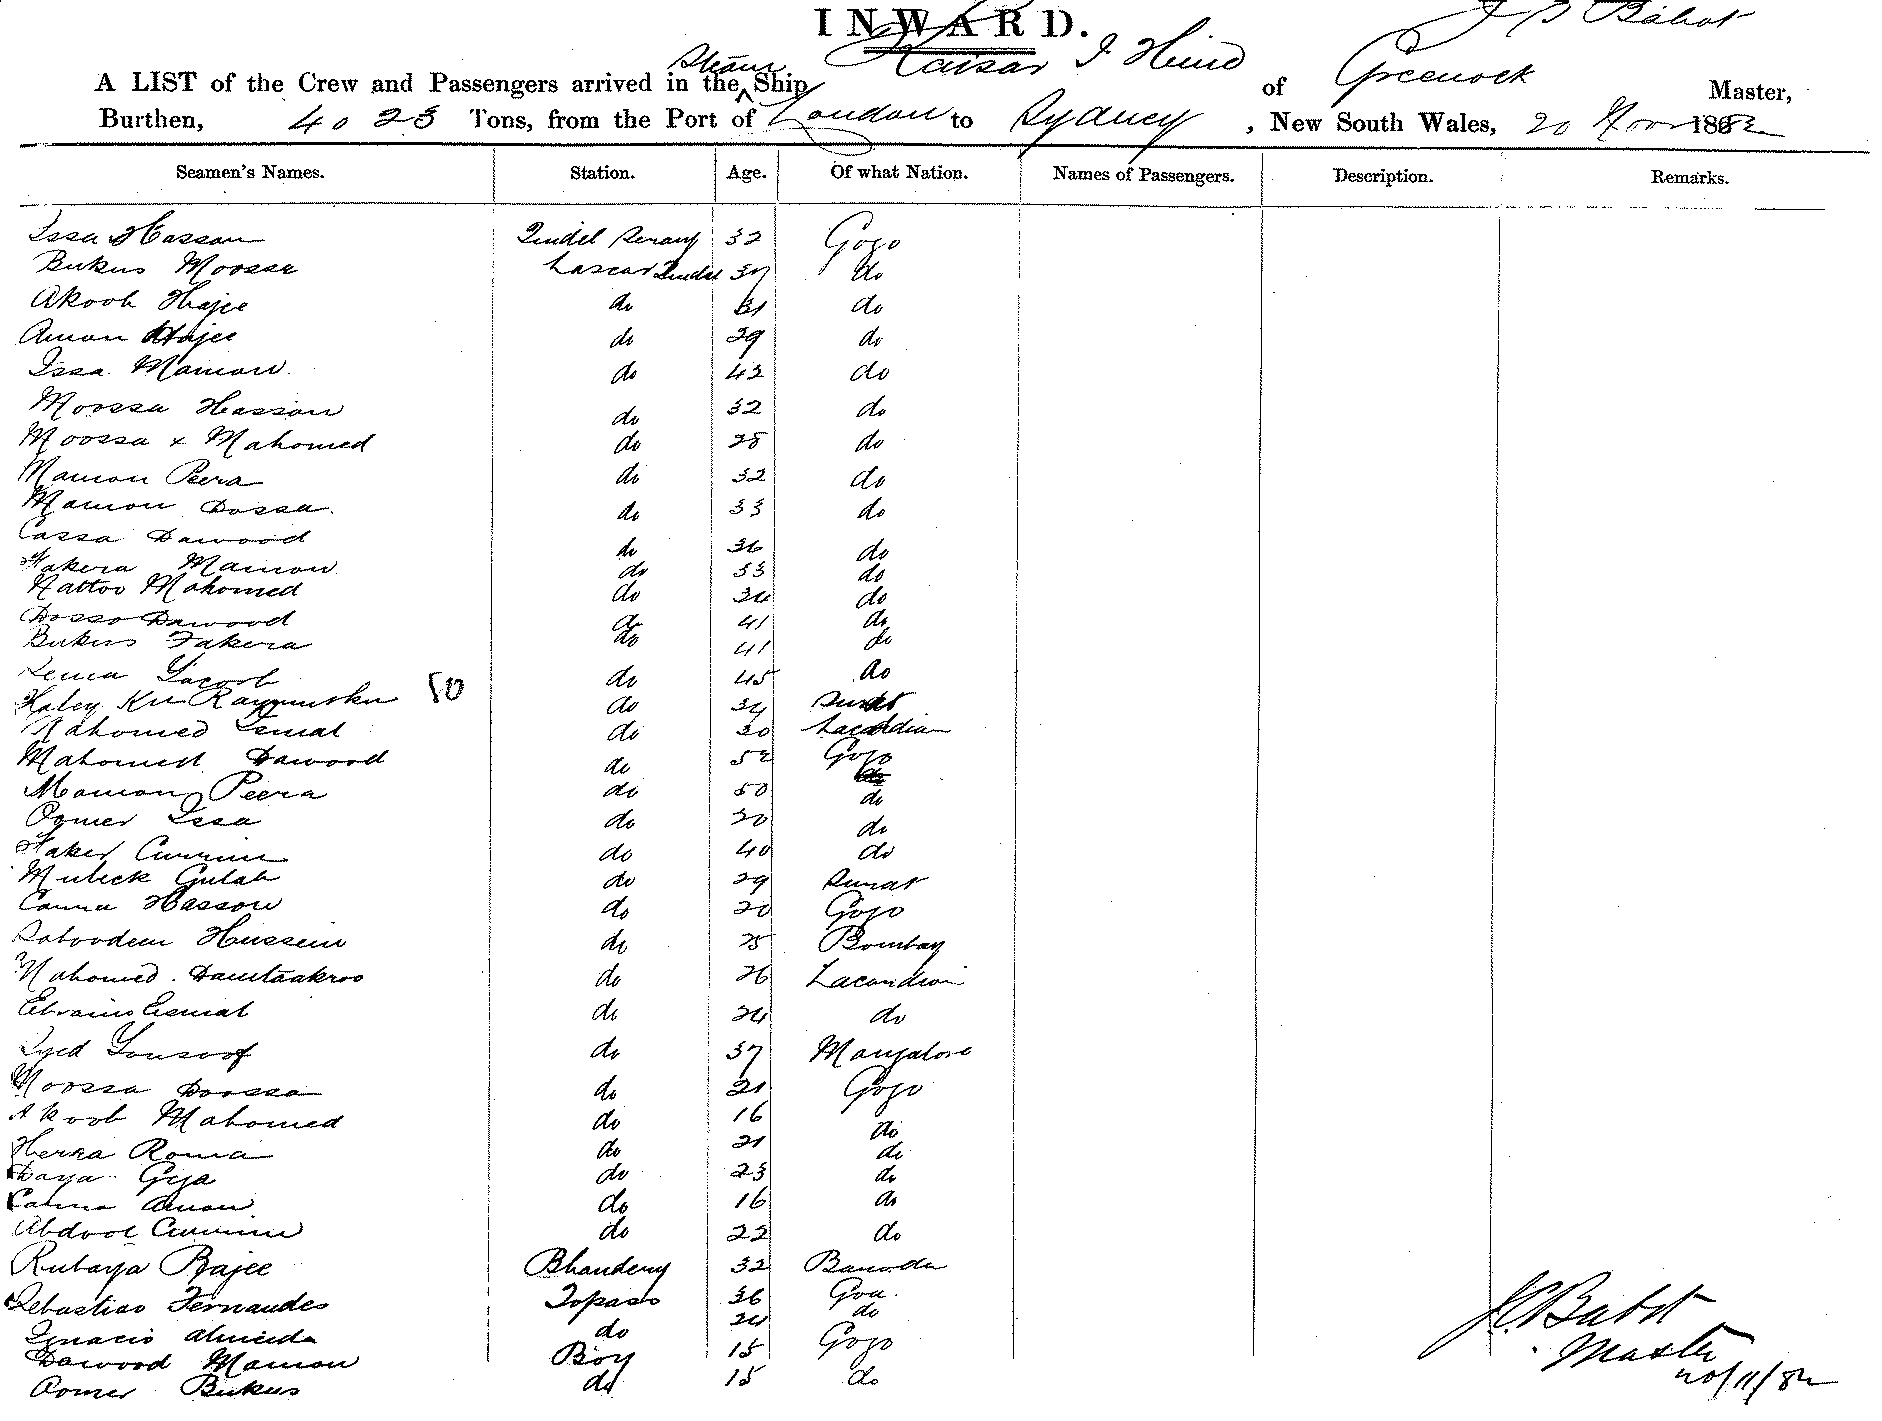 INWARD.
J S Babot
A LIST of the Crew and Passengers arrived in the Steam Ship Kaisar I Hind of Greenock Master,
Burthen, 4023 Tons, from the Port of London to Sydney, New South Wales, 20 Nov 1882
Seamen's Names. Station. Age. Of what Nation. Names of Passengers. Description. Remarks.
Issa Hassan Tindel Serang 32 Gogo
Bukus Moossa Lascar Tindel 37 do
Akoob Hajee do 31 do
Amon Hajee do 29 do
Issa Mamon do 42 do
Moossa Hasson do 32 do
Moossa x Mahomed do 28 do
Mamon Peera do 32 do
Mamon Dossa do 33 do
Cassa Dawood do 36 do
Fakera Mamon do 33 do
Nattoo Mahomed do 34 do
Dosso Dawood do 41 do
Bukus Fakera do 41 do
Yacoob do 45 do
50
do 34 Surat
Mahomed Esmal do 30 Lacaddian
Mahomed Dawood do 52 Gogo
Mamon Peera do 50 do
Oomer Issa do 20 do
Faker Currim do 40 do
Mubeck Gulab do 29 Surat
Canna Hasson do 20 Gogo
Saboodeen Hussein do 25 Bombay
Mahomed do 26 Lacandian
Ebraim Esmal do 24 do
Syed Yousoof do 37 Mangalore
Moossa Doossa do 21 Gogo
Akoob Mahomed do 16 do
Herra Roma do 21 do
Daya Giga do 23 do
Canna Amon do 16 do
Abdool Currim do 22 do
Rubaya Bajee Bhandery 32 Baroda
Sebastiao Fernandes Topass 36 Goa.
Ignacio Almeida do 24 do
Dawood Mamon Boy 15 Gogo
Oomer Bukus do 15 do
Babot
Master
20/11/82